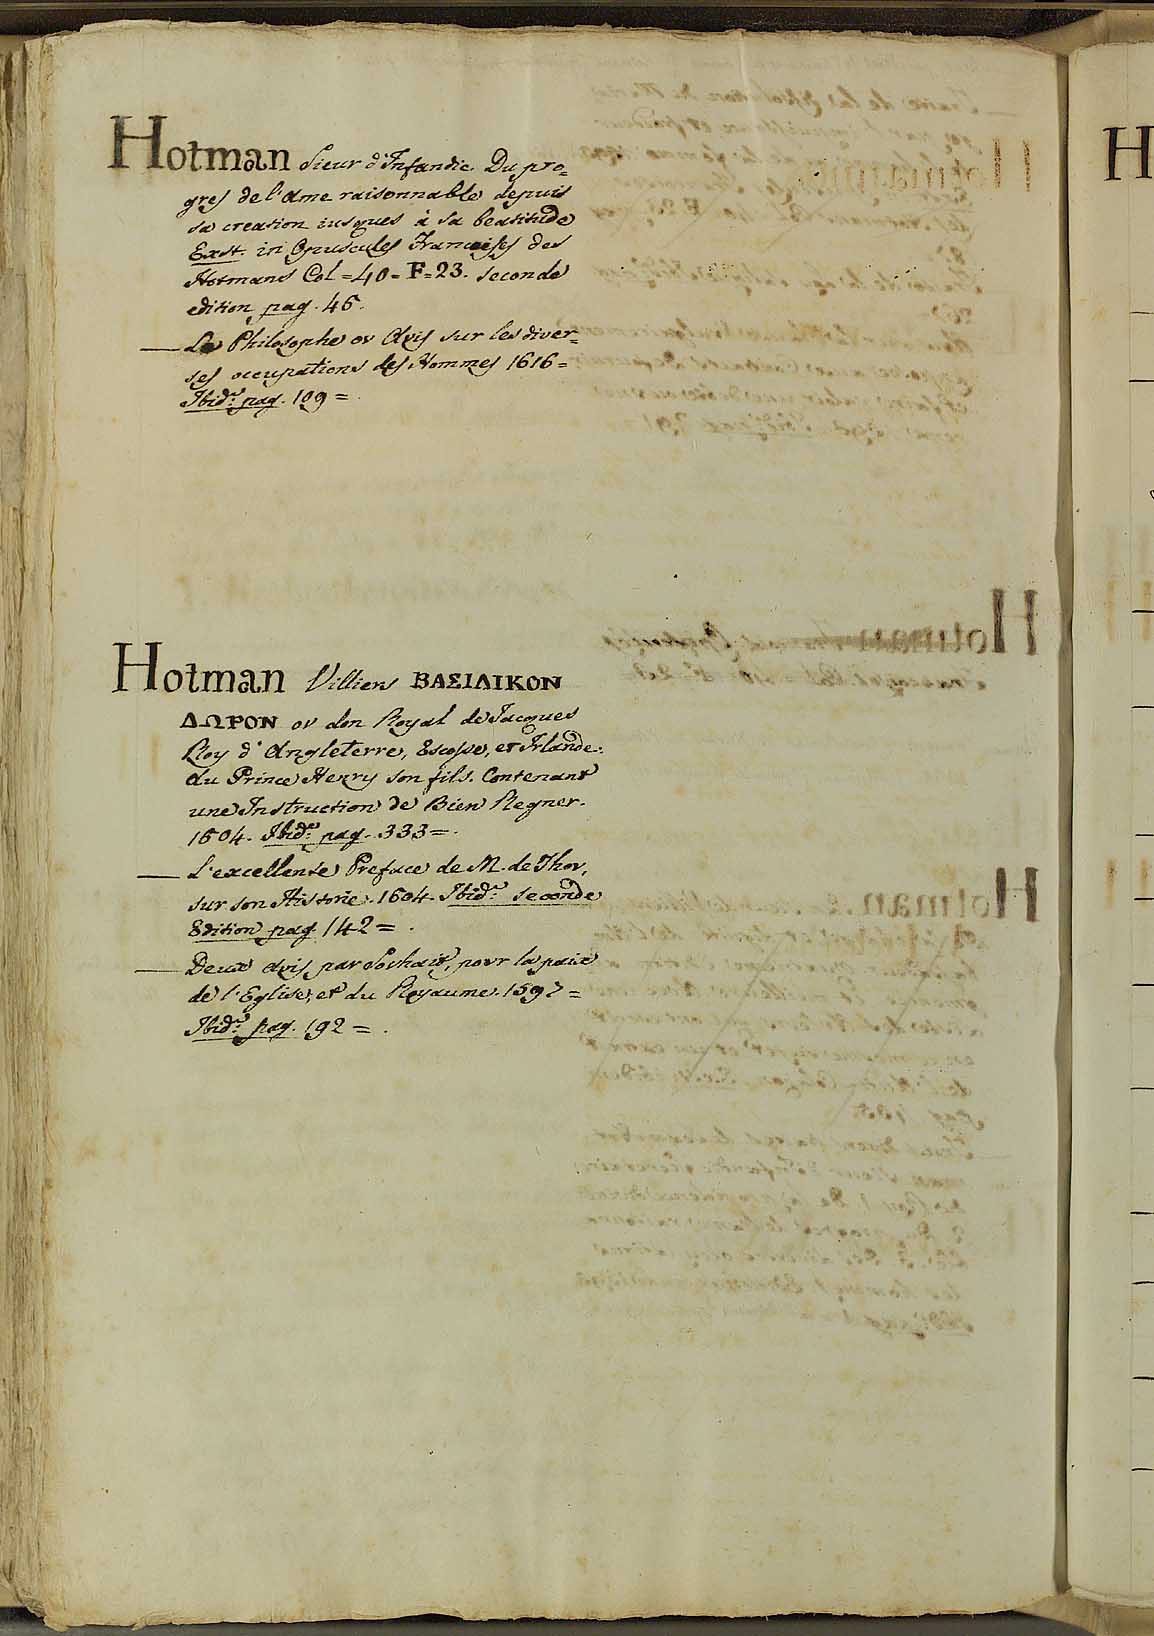 Hotman Sieur d'Infandic. Du pro=
gres de l'Ame raisonnable depuis
sa creation iusques à sa beatitude
Exst. in Opuscules Françoises des
Hotmans Col = 40 = F = 23. seconde
edition pag. 45.
Le Philosophe ov Avis sur les diver=
ses occupations des Hommes 1616 =
Ibid.m pag. 109 =
Hotman Villiers ΒΑΣΙΛΙΚΟΝ
ΔΩΡΟΝ ov don Royal de Jacques
Roy d'Angleterre, Escosse, et Irlande.
au Prince Henry son fils. Contenant
une Instruction de Bien Regner.
1604. Ibid.m pag. 333 = .
L'excellente Preface de M. de Thov,
sur son Historie. 1604. Ibid.m seconde
Edition pag. 142 = .
Deux Avis par Sovhait, povr la paix
de l'Eglise, et du Royaume. 1597 =
Ibid.m pag. 192 = .
H